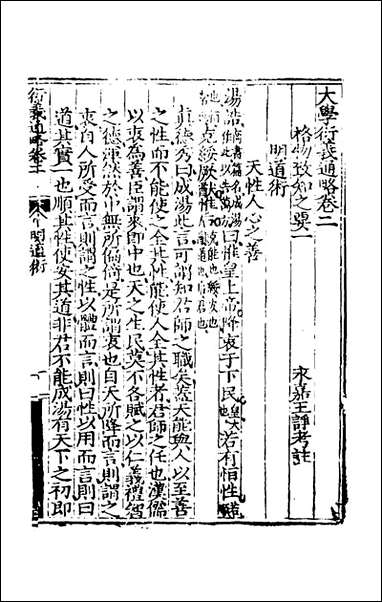 大學衍義通略卷二
格物致知之要一　永嘉王諍考註
明道術
天性人心之善
湯誥商書篇名成湯曰惟皇上帝降衷于下民皇大也若有恒性
克綏厥猷惟后
真德秀曰成湯此言可謂知君師之職矣蓋天能與人以至善
之性而不能使之全其性能使人全其性者君師之任也漢儒
以衷為善臣謂衷即中也天之生民莫不各賦之以仁義禮智
之德渾然於中無所偏倚是所謂衷也自天所降而言則謂之
衷自人所受而言則謂之性以體而言則曰性以用而言則曰
道其實一也順其性使安其道非君不能成湯有天下之初即
衍義通略卷二　明道術